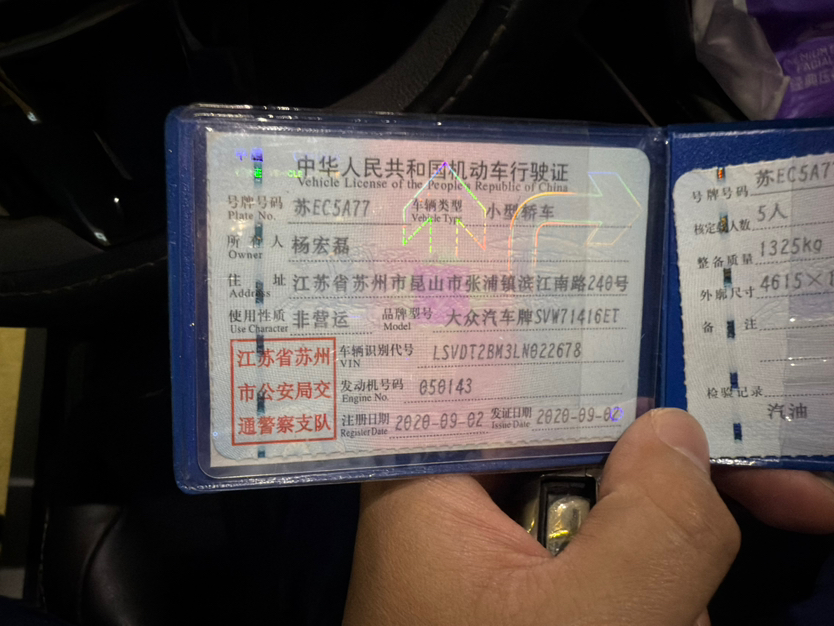 中华人民共和国机动车行驶证
Vehicle License of the People's Republic of China
号牌号码 苏EC5A77 车辆类型 小型轿车
Plate No. Vehicle Type
所有人 杨宏磊
Owner
住址 江苏省苏州市昆山市张浦镇滨江南路240号
Address
使用性质 非营运 品牌型号 大众汽车牌SVW71416ET
Use Character Model
江苏省苏州
市公安局交
通警察支队
车辆识别代号 LSVDT2BM3LN022678
VIN
发动机号码 050143
Engine No.
注册日期 2020-09-02 发证日期 2020-09-02
Register Date Issue Date
号牌号码 苏EC5A77
核定载人数 5人
整备质量 1325kg
外廓尺寸 4615×1
备注
检验记录
汽油